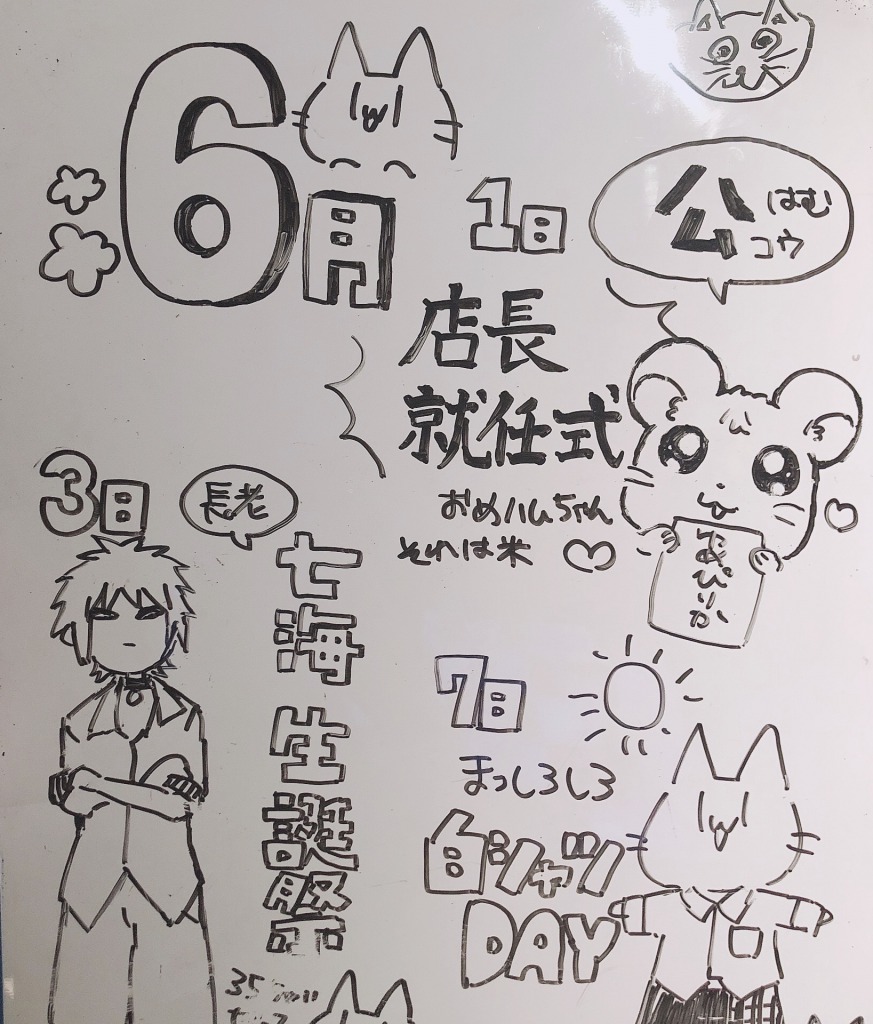 6月
1日
公 はむ
コウ
店長
就任式
おめハムちゃん
それは米♡
なあぴりか
3日
長老
七海 生誕祭
7日
まっしろしろ
白シャツ
DAY